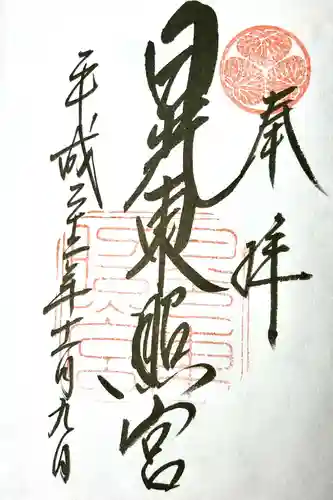 奉拝
日光東照宮
平成二十二年十一月九日